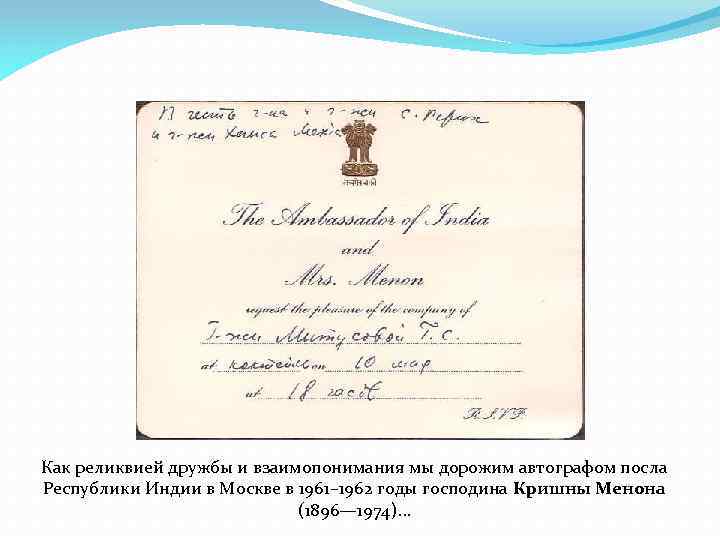 В честь г-на и г-жи С. Рерих
и г-жи Ханса Мехта
सत्यमेव जयते
The Ambassador of India
and
Mrs. Menon
request the pleasure of the company of
Г-жи Митусовой Т. С.
at коктейль on 10 мар
at 18 часов
R.S.V.P.
Как реликвией дружбы и взаимопонимания мы дорожим автографом посла
Республики Индии в Москве в 1961–1962 годы господина Кришны Менона
(1896—1974)…